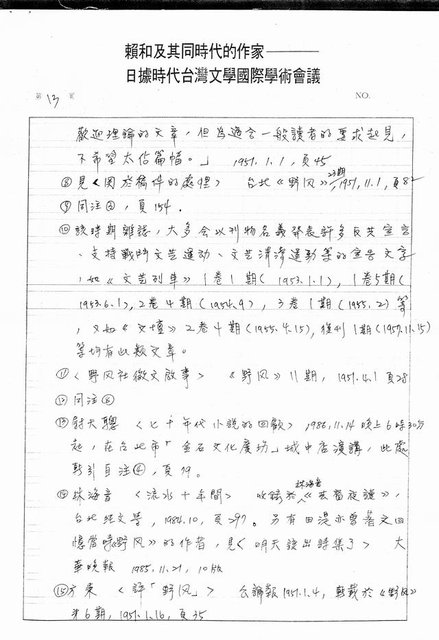 賴和及其同時代的作家——
日據時代台灣文學國際學術會議
第 13 頁 NO.
歡迎理論的文章,但為適合一般讀者的要求起見,
不希望太佔篇幅。」 1951.1.1,頁45
⑧見〈關於稿件的處理〉 台北《野風》 1951.11.1,頁82
⑨同注 ,頁154.
⑩該時期雜誌,大多會以刊物名義發表許多反共宣言
、支持戰鬥文藝運動、文藝清潔運動等的宣告文字
,如《文藝列車》1卷1期(1953.1.1),1卷5期(
1953.6.1),2卷4期(1954.9),3卷1期(1955.2)等
,又如《文壇》2卷4期(1955.4.15),復刊1期(1957.11.15)
等均有此類文章。
⑪〈野風社徵文啟事〉 《野風》11期,1951.4.1 頁28
⑫同注⑧
⑬尉天驄〈七十年代小說的回顧〉,1986.11.14晚上6時30分
起,在台北市「金石文化廣場」城中店演講,此處
引自注④,頁19。
⑭林海音〈流水十年間〉 收錄於林海音《芸窗夜讀》,
台北純文學,1984.10,頁297。另有田湜亦曾著文回
憶當時《野風》的作者,見〈明天讀出詩集了〉 大
華晚報 1985.11.21,10版
⑮方東〈評「野風」〉 公論報1951.1.4,轉載於《野風》
第6期,1951.1.16,頁35